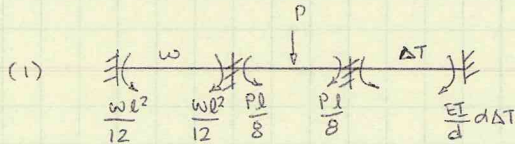 P
(1) w ΔT
wl²/12 wl²/12 Pl/8 Pl/8 EI/d αΔT